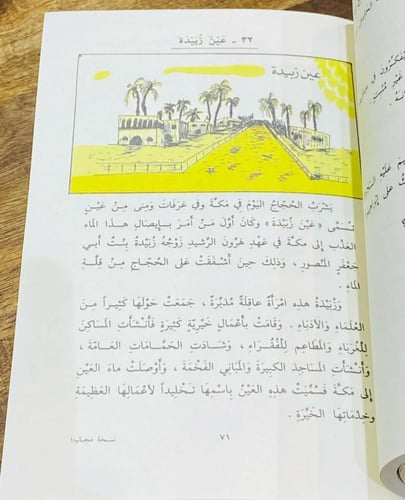 ٣٢ - عَيْنُ زُبَيْدَة
عين زبيدة
يَشْرَبُ الحُجَّاجُ اليَوْمَ فِي مَكَّةَ وفِي عَرَفَاتَ وَمِنى مِنْ عَيْنٍ
تُسَمَّى « عَيْنَ زُبَيْدَةَ » وكَانَ أوَّلَ مَنْ أمَرَ بِإيصَالِ هذا الماءِ
العَذْبِ إلى مَكَّةَ في عَهْدِ هَرُونَ الرَّشِيدِ زَوْجُهُ زُبَيْدَةُ بِنْتُ أبي
جَعْفَرٍ المَنْصُورِ ، وَذلِكَ حِينَ أشْفَقَتْ عَلى الحُجَّاجِ مِنْ قِلَّةِ
المَاءِ .
وَزُبَيْدَةُ هذِهِ امْرَأةٌ عَاقِلَةٌ مُدَبِّرَةٌ ، جَمَعَتْ حَوْلَهَا كَثِيراً مِنَ
العُلَمَاءِ وَالأدَبَاءِ . وَقَامَتْ بِأعْمَالٍ خَيْرِيَّةٍ كَثِيرَةٍ فَأنْشَأتِ المَسَاكِنَ
لِلْغُرَبَاءِ وَالمَطَاعِمَ لِلْفُقَرَاءِ ، وَشَادَتِ الحَمَّامَاتِ العَامَّةَ ،
وَأنْشَأتِ المَسَاجِدَ الكَبِيرَةَ وَالمَبَانِي الفَخْمَةَ ، وَأوْصَلَتْ مَاءَ العَيْنِ
إلى مَكَّةَ فَسُمِّيَتْ هذِهِ العَيْنُ بِاسْمِهَا تَخْلِيداً لأعْمَالِهَا العَظِيمَةِ
وخِدْمَاتِهَا الخَيِّرَةِ .
٧١
نسخة مجانية